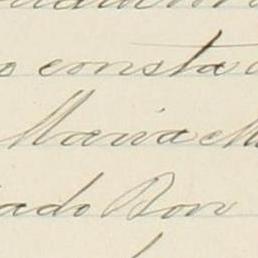 o consta
Maria M
ado Bon